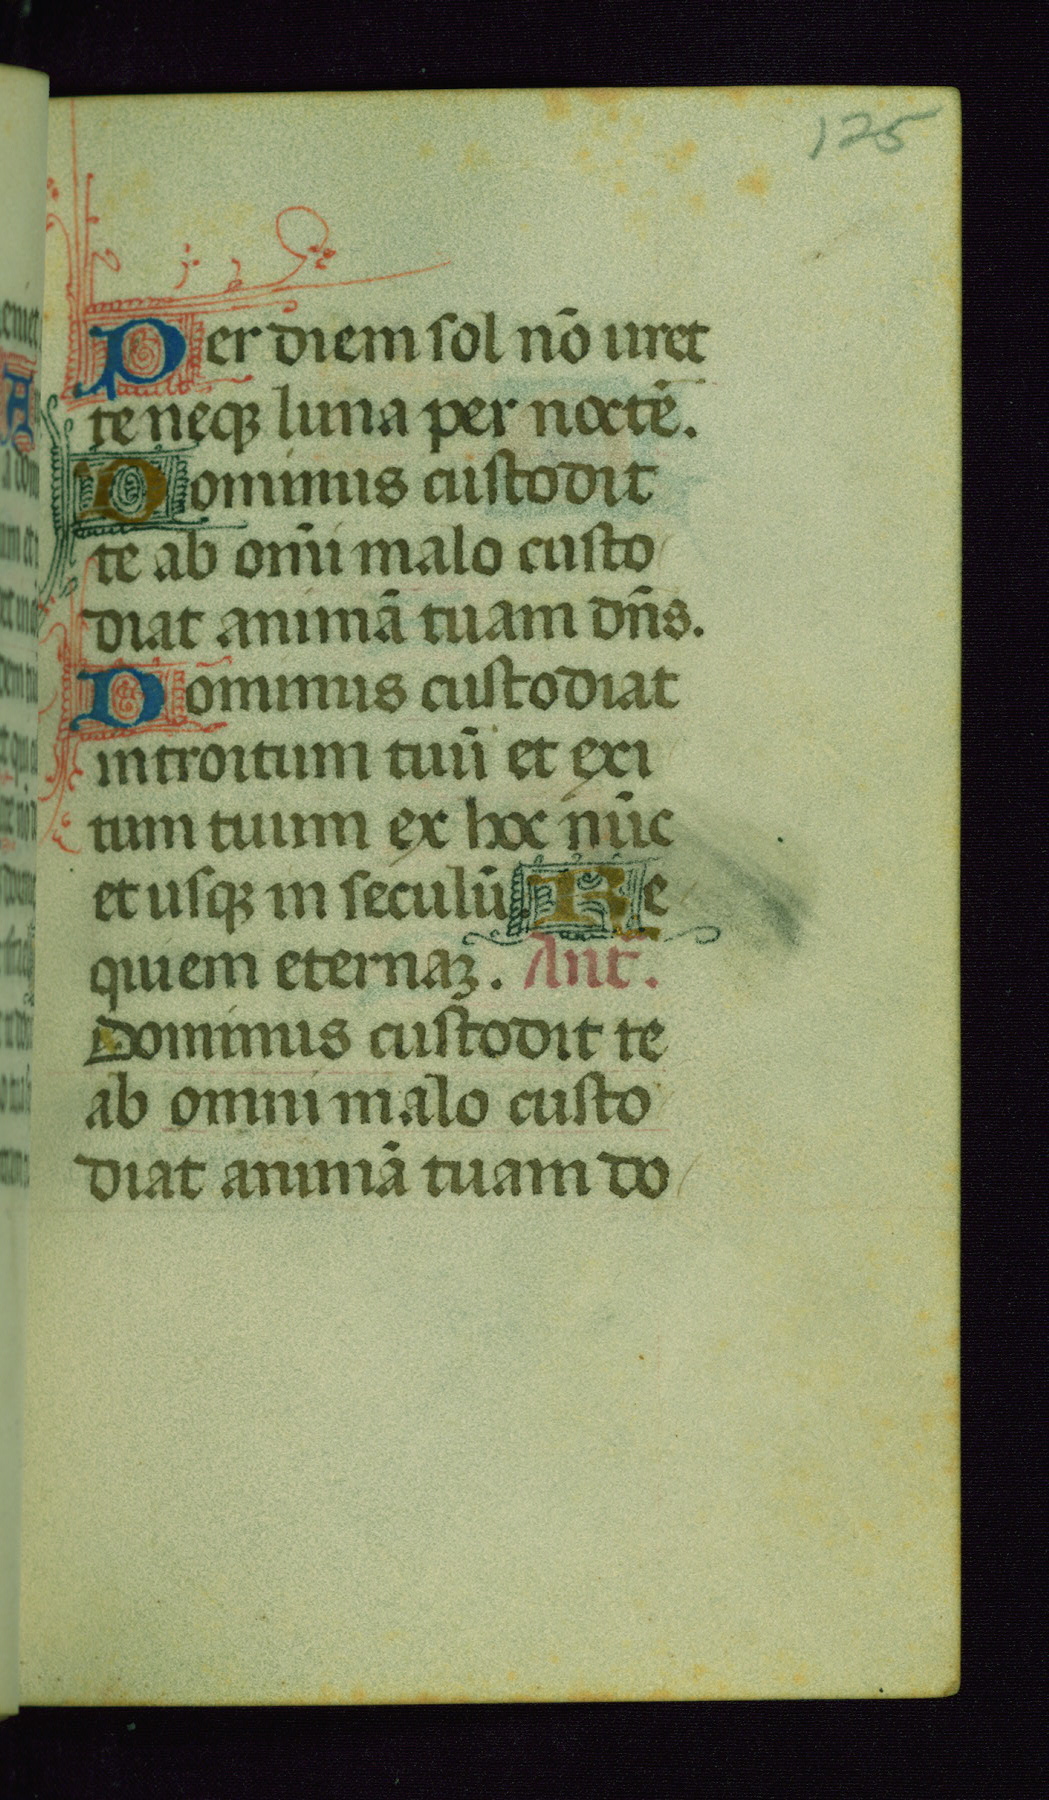 125
Per diem sol nõ uret
te neqꝫ luna per noctẽ.
Dominus custodit
te ab om̃i malo custo
diat animã tuam dñs.
Dominus custodiat
introitum tuũ et exi
tum tuum ex hoc nũc
et usqꝫ in seculũ. Re
quiem eternaꝫ. Ant̃.
Dominus custodit te
ab omni malo custo
diat animã tuam do